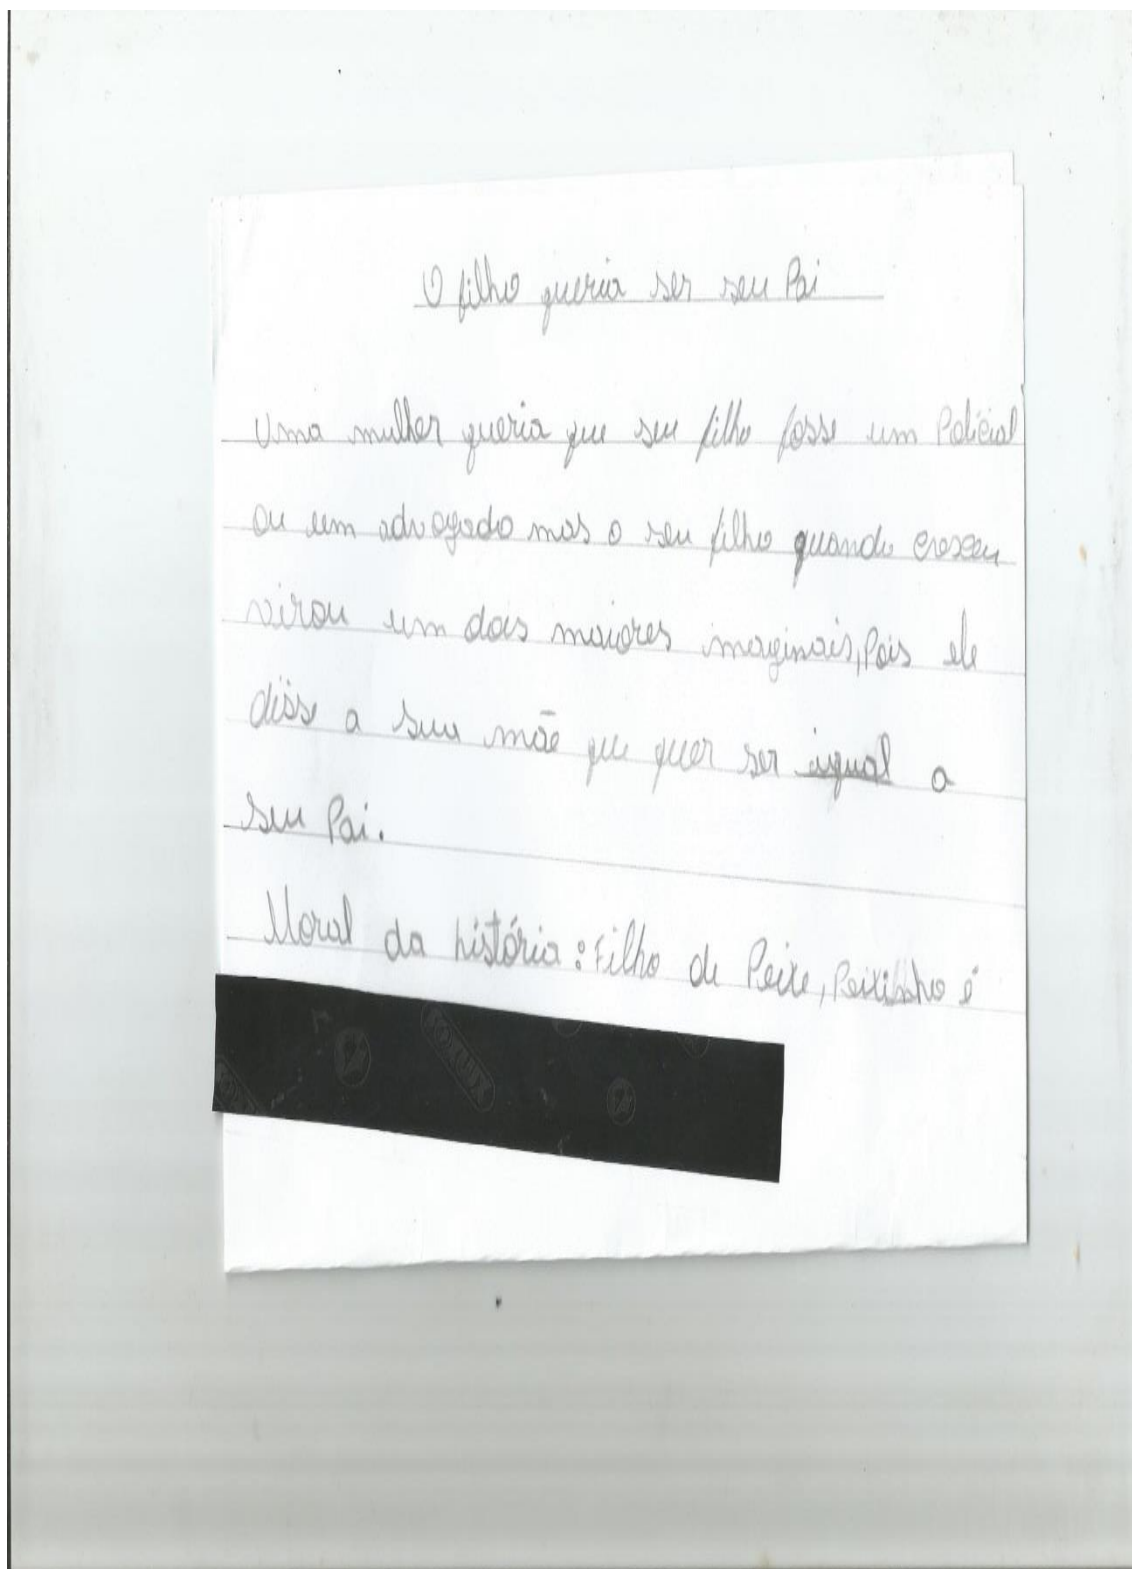 O filho queria ser seu Pai
Uma mulher queria que seu filho fosse um Policial
ou um advogado mas o seu filho quando cresceu
virou um dos maiores marginais, Pois ele
disse a sua mãe que quer ser igual a
seu Pai.
Moral da história: Filho de Peixe, Peixinho é